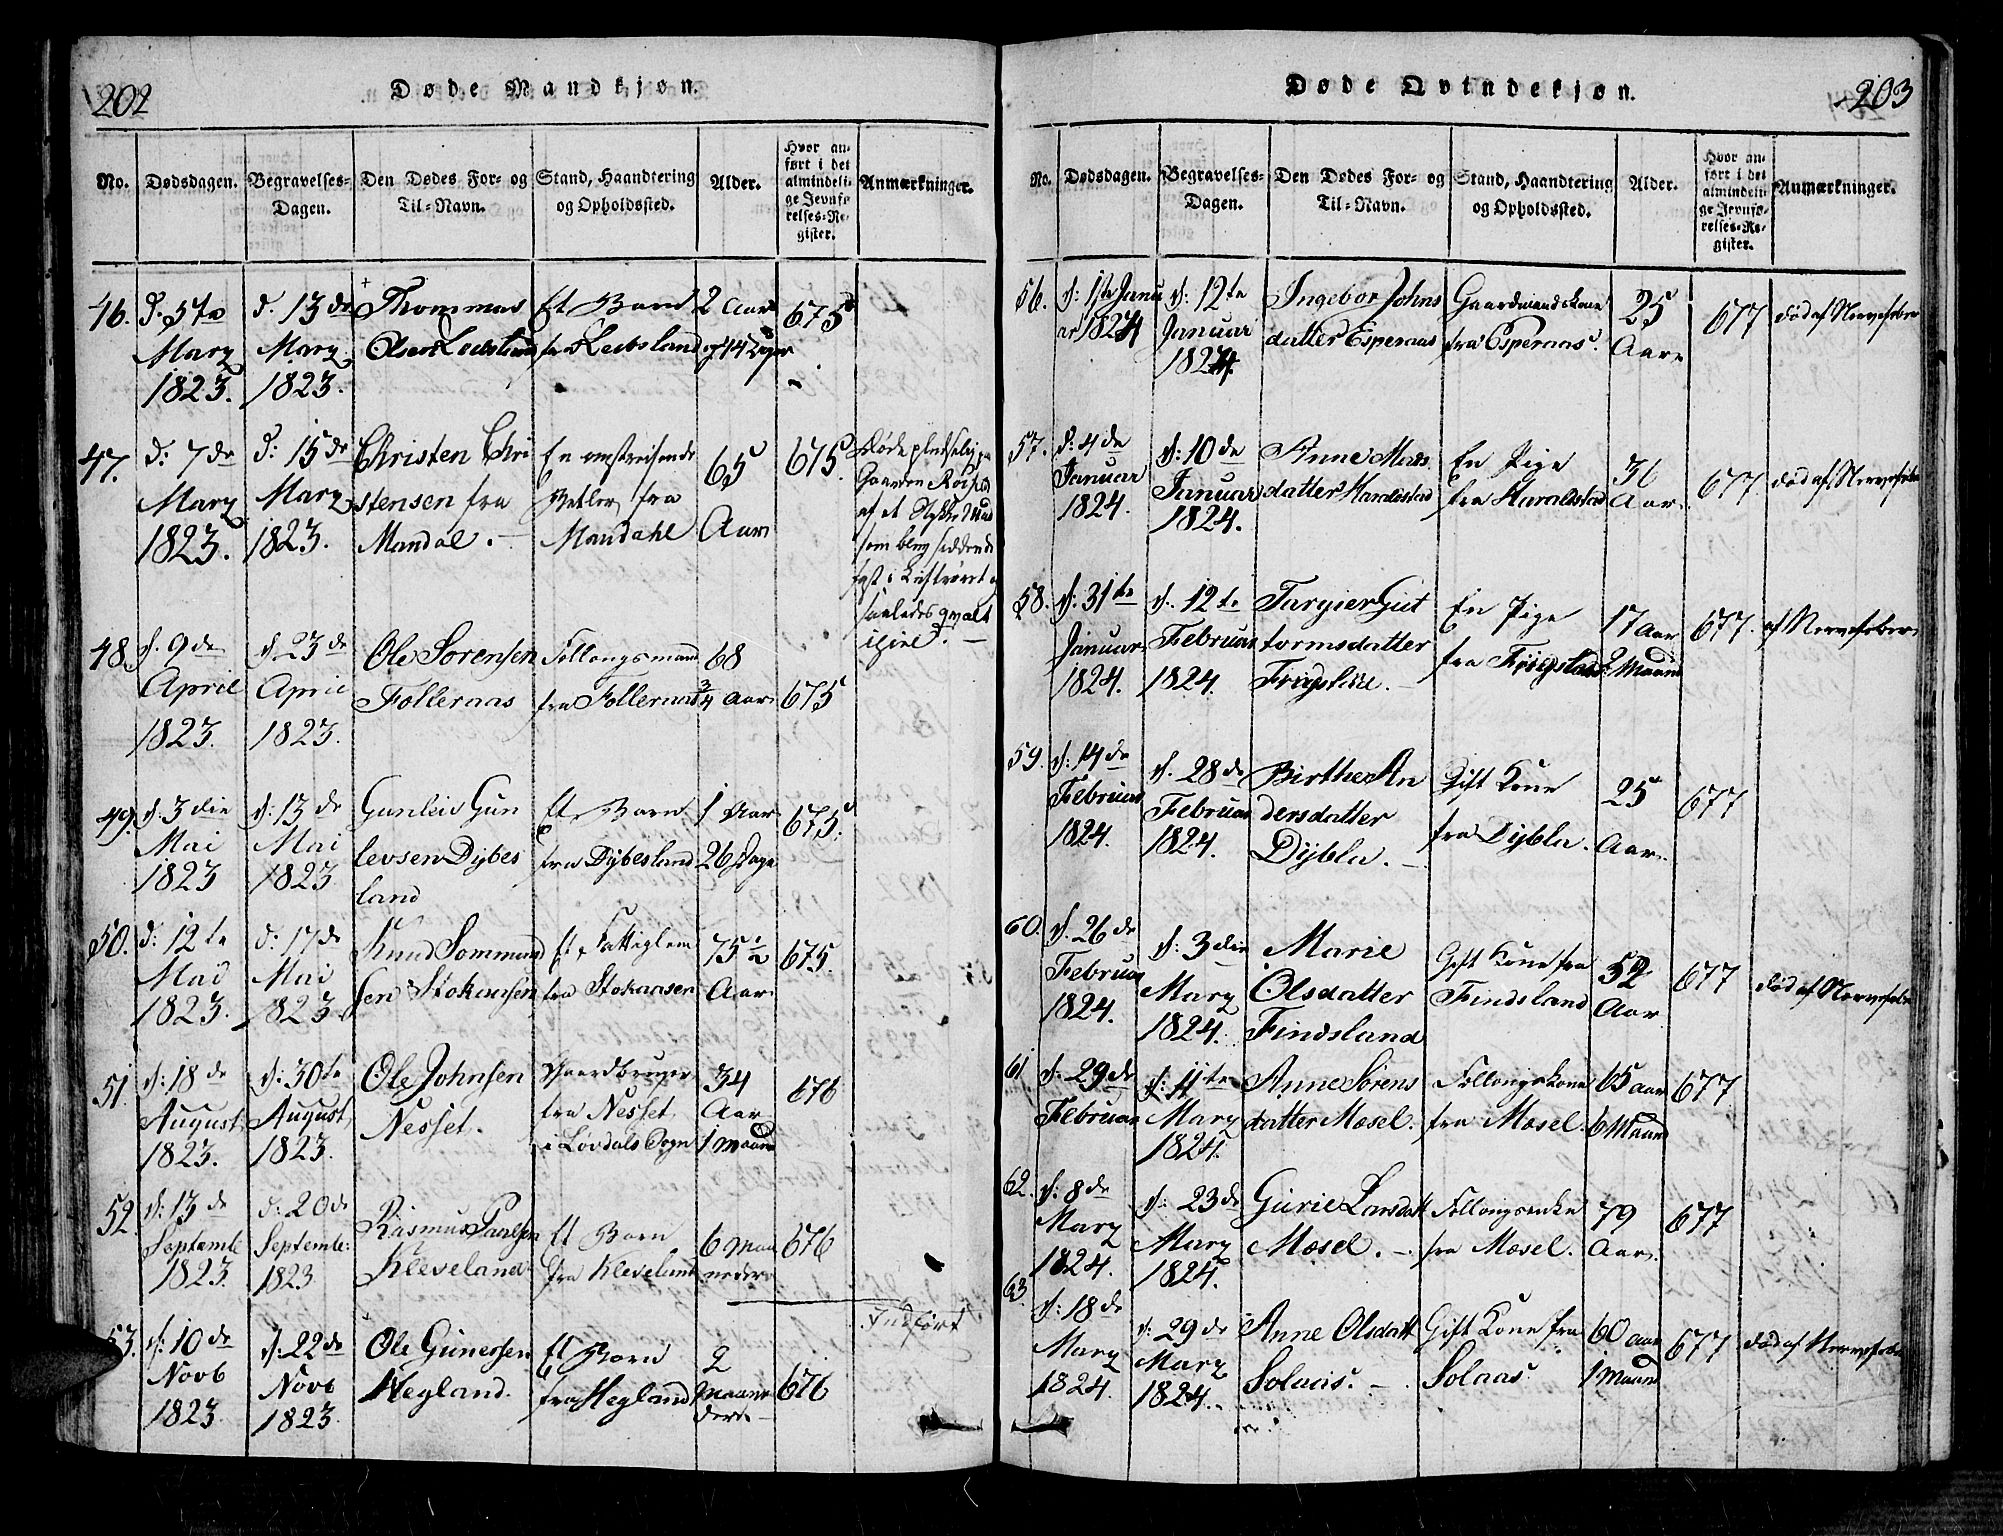 202
Døde Mandkjøn.
No. Dødsdagen. Begravelses-Dagen. Den Dødes For- og Til-Navn. Stand, Haandtering og Opholdssted. Alder. Hvor anført i det almindelige Jevnførelses-Register. Anmærkninger.
46. d: 5te d. 13de Thommas Et Barn 2 Aar 675
Marz Marz Olsen fra og 14 Dage
1823. 1823.
47. d: 7de d: 15de Christen Chri En omstreifende 65 675. Døde
Marz Marz stensen fra Betler fra Aar Gaarden
1823. 1823. Mandal. Mandahl af et Stykke
som blev siddende
fast i Luftrøret
saaledes qvalt
48. d. 9de d. 23de Ole Sørensen Follougsmand 68 675
April April Folleraas fra Folleraas 3/4 Aar
1823. 1823.
49. d. 3die d: 13de Gunleiv Gun Et Barn 1 Aar 675.
Mai Mai levsen Dybes fra Dybesland 26 Dage
1823 1823 land
50. d: 12te d: 17de Knud Sommund Et Fattiglem 75 1/2 675.
Mai Mai sen Stokansen fra Stokaasen Aar
1823. 1823.
51. d: 18de d: 30te Ole Johnsen Gaardbruger 34 676
August August Nesset. fra Nesset Aar
1823. 1823. i Løvdals Sogn 1 Maaned
52. d: 13de d: 20de Rasmus Paalsen Et Barn 6 Maa 676
Septemb Septemb: Kleveland fra Kleveland neder
1823. 1823
Indført
53. d: 10de d: 22de Ole Gunessen Et Barn 2 676
Novb Novb Hegland. fra Hegland Maane
1823. 1823. der
203
Døde Qvindekjøn.
No. Dødsdagen. Begravelses-Dagen. Den Dødes For- og Til-Navn. Stand, Haandtering og Opholdssted. Alder. Hvor anført i det almindelige Jevnførelses-Register. Anmærkninger.
56. d: 1ste Janu d: 12te Ingebor Johns Gaardmandskone 25 677 død af Nervefeber
ar 1824 Januar datter Esperaas fra Esperaas. Aar
1824.
57. d: 4de d: 10de Anne Mads En Pige 36 677. død af Nervefeber
Januar Januar datter Haraldstad fra Haraldstad Aar
1824. 1824.
58. d: 31te d. 12te Targier Gut En Pige 17 Aar 677. af Nervefeber
Januar Februar tormsdatter fra Maaned
1824. 1824.
59. d: 14de d. 28de Birthe An Gift Kone 25 677
Februar Februar dersdatter fra Dybla. Aar.
1824. 1824. Dybla.
60. d. 26de d: 3die Marie Gift Kone fra 52 677 død af Nervefeber
Februar Marz Olsdatter Findsland Aar
1824. 1824. Findsland
61 d. 29de d: 11te Anne Sørens Follougskone 65 Aar 677
Februar Marz datter Mosel. fra Mosel. 6 Maaned
1824.
62. d. 8de d: 23de Gurie Larsdatt Follougsenke 79 677
Marz Marz Mosel. fra Mosel. Aar.
1824. 1824.
63. d: 18de d: 29de Anne Olsdatt Gift Kone fra 60 aar 677 død af Nervefeber
Marz Marz Solaas. Solaas. 1 Maaned
1824. 1824.